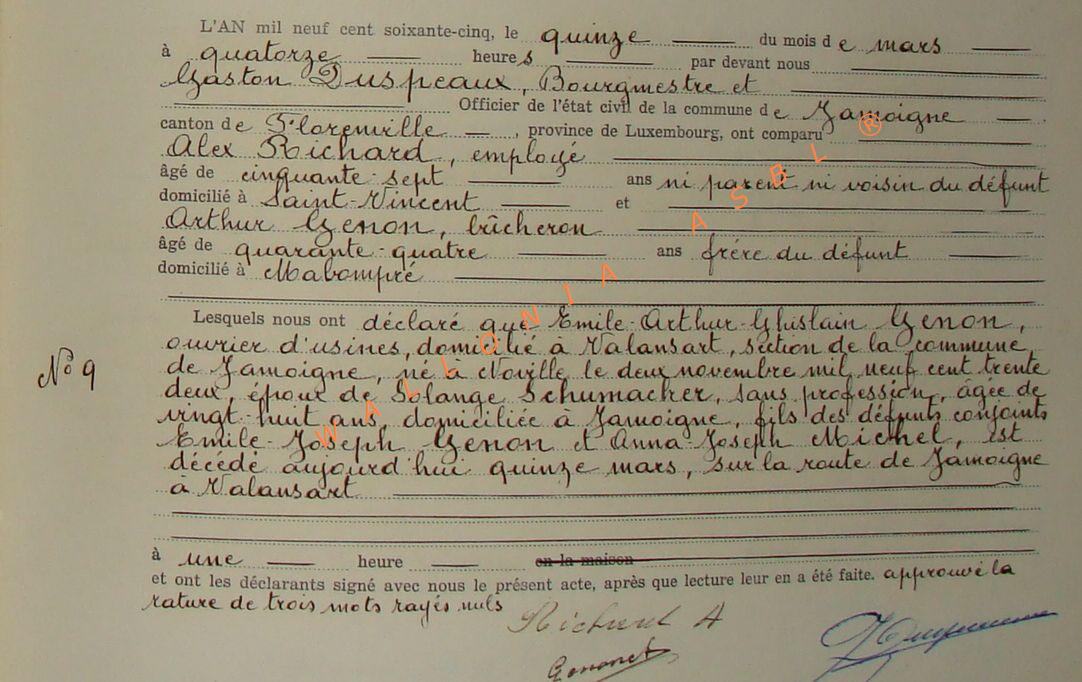 L'AN mil neuf cent soixante-cinq, le quinze du mois de mars
à quatorze heures par devant nous
Gaston Duspeaux, Bourgmestre et
Officier de l'état civil de la commune de Jamoigne
canton de Florenville, province de Luxembourg, ont comparu
Alex Richard, employé
âgé de cinquante-sept ans ni parent ni voisin du défunt
domicilié à Saint-Vincent et
Arthur Genon, bûcheron
âgé de quarante-quatre ans frère du défunt
domicilié à Mabompré
Lesquels nous ont déclaré que Emile-Arthur-Ghislain Genon,
ouvrier d'usines, domicilié à Valansart, section de la commune
de Jamoigne, né à Noville le deux novembre mil neuf cent trente
N° 9
deux, époux de Solange Schumacher, sans profession, âgée de
vingt-huit ans, domiciliée à Jamoigne, fils des défunts conjoints
Emile-Joseph Genon et Anna-Joseph Michel, est
décédé aujourd'hui quinze mars, sur la route de Jamoigne
à Valansart
à une heure en la maison
et ont les déclarants signé avec nous le présent acte, après que lecture leur en a été faite. approuvé la
rature de trois mots rayés nuls
Richard A
WALLONIA ASBL ®